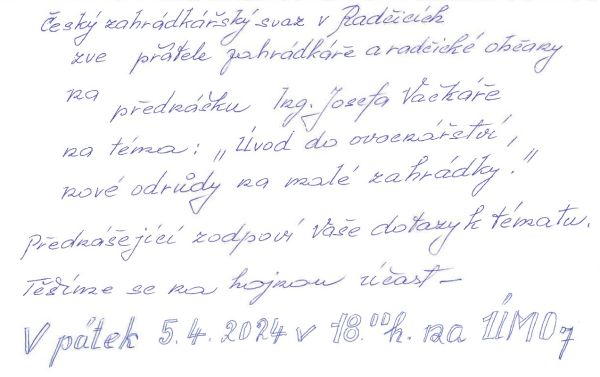 Český zahrádkářský svaz v Radčicích
zve přátele zahrádkáře a radčické občany
na přednášku Ing. Josefa Vačkáře
na téma: „Úvod do ovocnářství,
nové odrůdy na malé zahrádky."
Přednášející zodpoví Vaše dotazy k tématu.
Těšíme se na hojnou účast –
V pátek 5.4.2024 v 18.00h. na ÚMO7